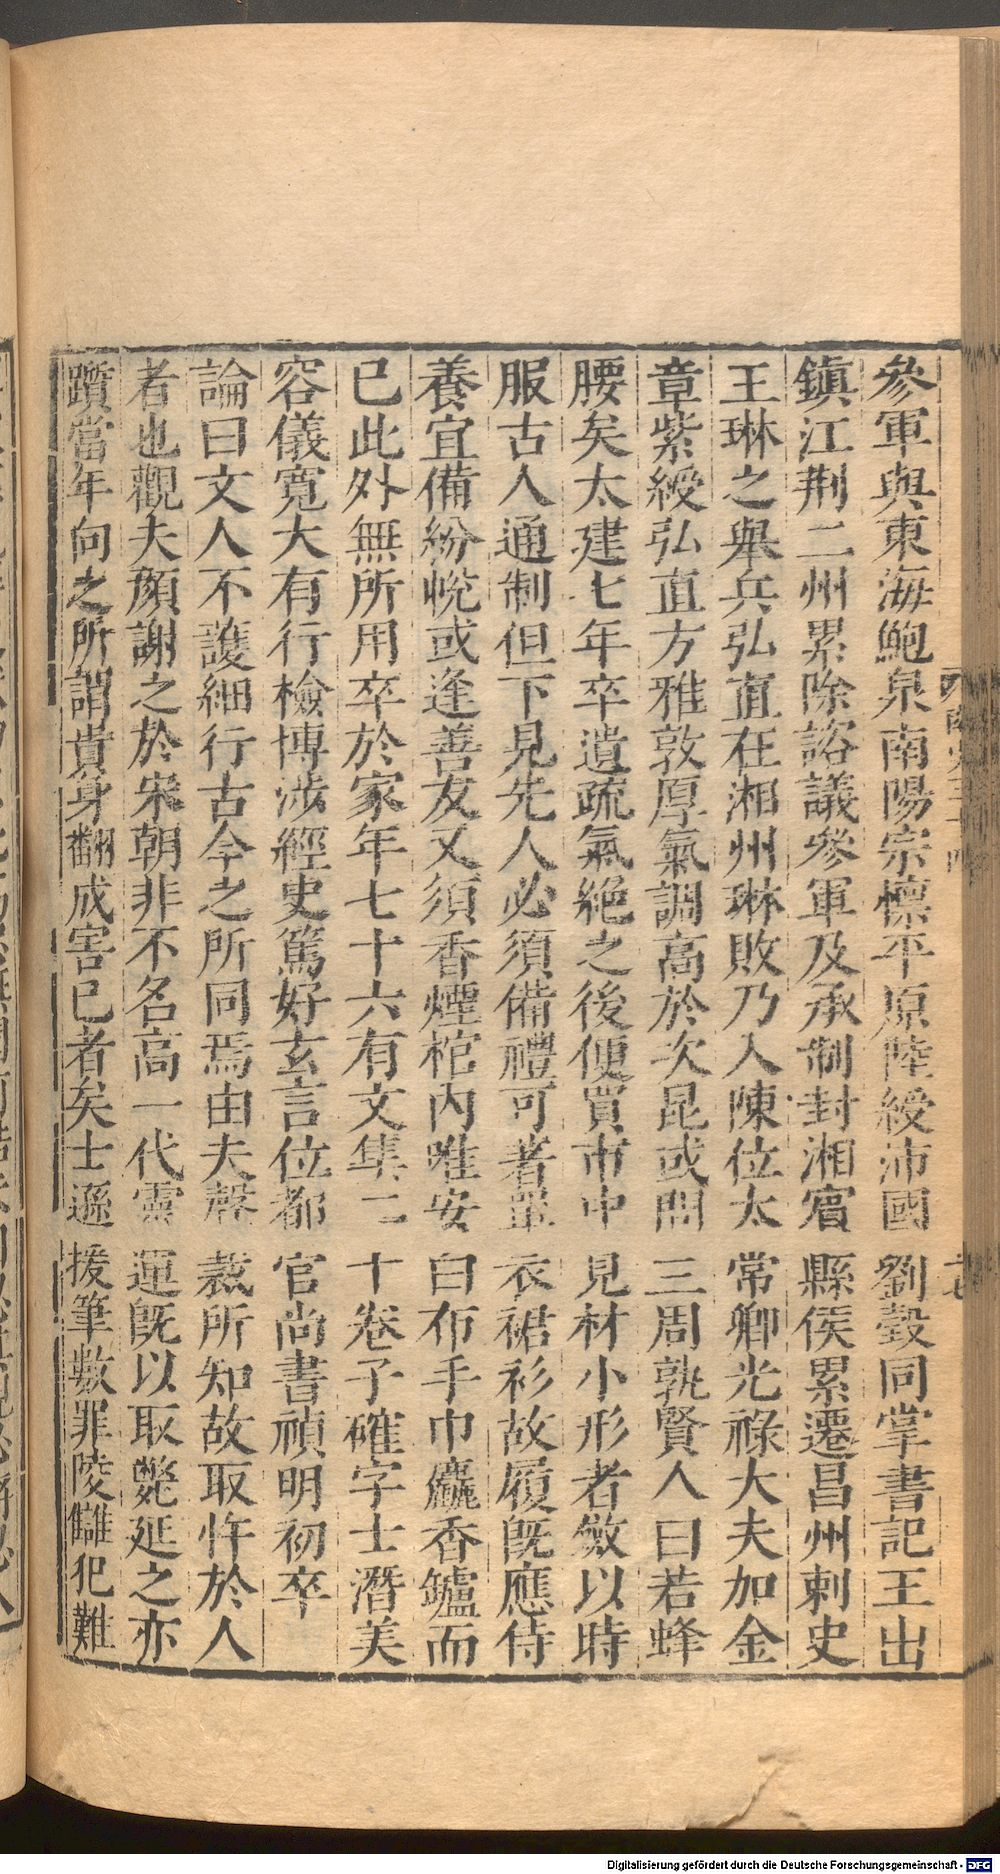 參軍與東海鮑泉南陽宗懍平原陸綬沛國劉瑴同掌書記王出
鎮江荆二州累除諮議參軍及承制封湘濱縣侯累遷昌州剌史
王琳之舉兵弘直在湘州琳敗乃入陳位太常卿光祿大夫加金
章紫綬弘直方雅敦厚氣調高於次昆或問三周孰賢人曰若蜂
腰矣太建七年卒遺疏氣絶之後便買市中見材小形者斂以時
服古人通制但下見先人必須備禮可著單衣裙衫故履既應侍
養宜備紛帨或逢善友又須香煙棺内唯安白布手巾麤香鑪而
已此外無所用卒於家年七十六有文集二十卷子確字士潛美
容儀寛大有行檢博涉經史篤好玄言位都官尚書禎明初卒
論曰文人不護細行古今之所同焉由夫聲裁所知故取忤於人
者也觀夫顔謝之於宋朝非不名高一代靈運既以取斃延之亦
躓當年向之所謂貴身翻成害已者矣士遜援筆數罪陵讎犯難
南史三十四
十七
Digitalisierung gefördert durch die Deutsche Forschungsgemeinschaft - DFG